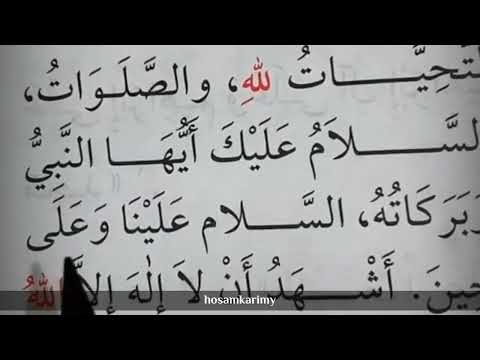 لتَّحِيَّاتُ لِلّٰهِ، والصَّلَوَاتُ،
السَّلَامُ عَلَيْكَ أَيُّهَا النَّبِيُّ
وَبَرَكَاتُهُ، السَّلام عَلَيْنَا وَعَلَى
حِينَ. أَشْهَدُ أَنْ لَا إِلٰهَ إِلاَّ اللهُ
hosamkarimy